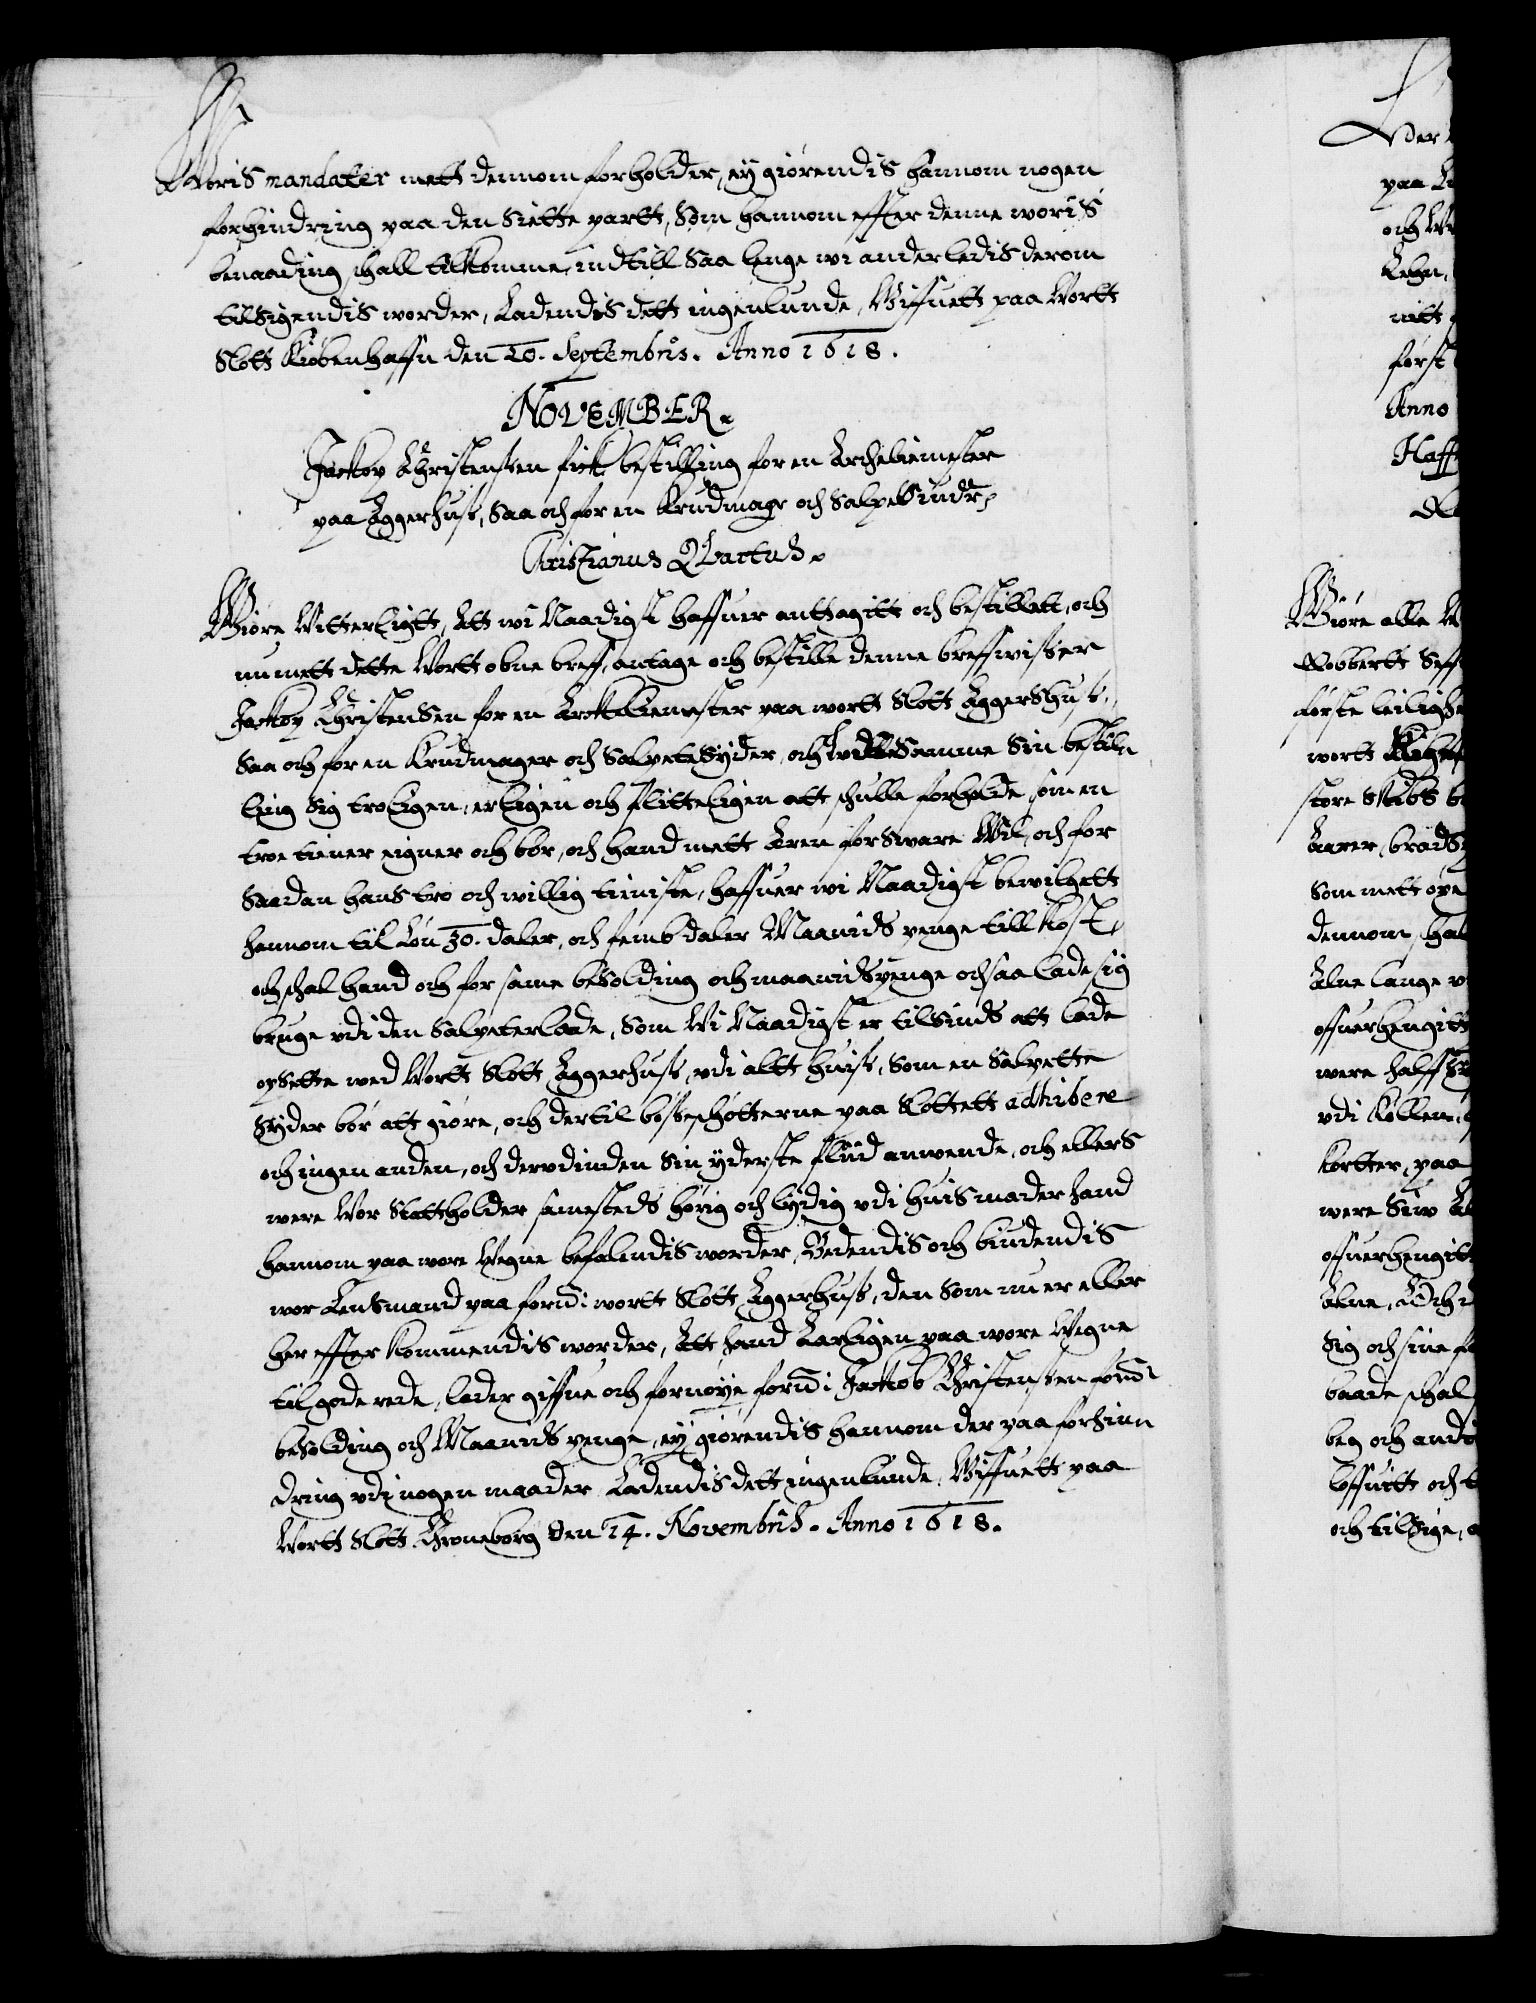 Woris mandater mett dennom forholder, ey giørendis hannom nogen
forhindring paa den Siette partt, Som hannom effter denne woris
benaading schall tilkomme, indtill Saa lenge wi anderledis derom
tilsigendis worder, Ladendis dett ingenlunde, Wiffuett paa Wortt
Slott Kiøbenhaffn den 20. Septembris. Anno 1618.
NOVEMBER.
Jackop Christensen fick bestilling for en Archeliemester
paa Aggerhuss, Saa och for en Krudmager och Salpetsiuder,
Christianus Qvartus.
Giøre Witterligtt, Att wi Naadigst haffuer anthagitt och bestillett, och
nu mett dette Wortt obne breff, antage och bestille denne breffwisser
Jackop Christensen for en Arckeliemester paa wortt Slott Aggershuss,
Saa och for en Krudmager och Salpetsyder, och udi Samme Sin bestil-
ling sig troligen, erligen och flitteligen att schulle forholde, som en
troe tiener eigner och bør, och hand mett Æren forsware Wil, och for
Saadan hans tro och willig tieniste, haffuer wi Naadigst bewilgett
hannom til Løn 30. daler, och femb daler Maanids penge till Kost,
och schal hand och for same besolding och maanids penge ochsaa lade sig
bruge vdi den Salpeterlade, Som Wi Naadigst er tilsinds att lade
opsette wed Wortt Slott Aggerhuss, vdi altt huiss, Som en Salpette
Syder bør att giøre, och dertil bøsseschøtterne paa Slottett adhibere
och ingen anden, och dervdinden Sin yderste flüd anwende, och ellers
were Wor Stattholder samesteds hørig och lydig vdi huis maader hand
hannom paa wore Wegne befalendis worder, Bedendis och biudendis
wor Lensmand paa forn: wortt Slott Aggerhuss, den Som nu er eller
her effter kommendis worder, Att hand Aarligen paa wore Wegne
til gode rede, lader giffue och fornøye forn: Jackob Christensen forn:
besolding och Maanids penge, ey giørendis hannom der paa forhin-
dring vdi nogen maader Ladendis dett ingenlunde. Wiffuett paa
Wortt Slott Croneborg den 14. Novembris. Anno 1618.
Giøre alle W
Robbertt
første leiligh
wortt
store Skibs b
Aarer, braads
Som mett
dennom, hal
Alne lange
offuerhengitt
were halff
vdi Køllen,
Kortter, paa
were Siu Al
offuerhengit
Alne, Och
Sig och sine
baade schal
beg och and
och tilsige,
paa
Anno
Haff
først